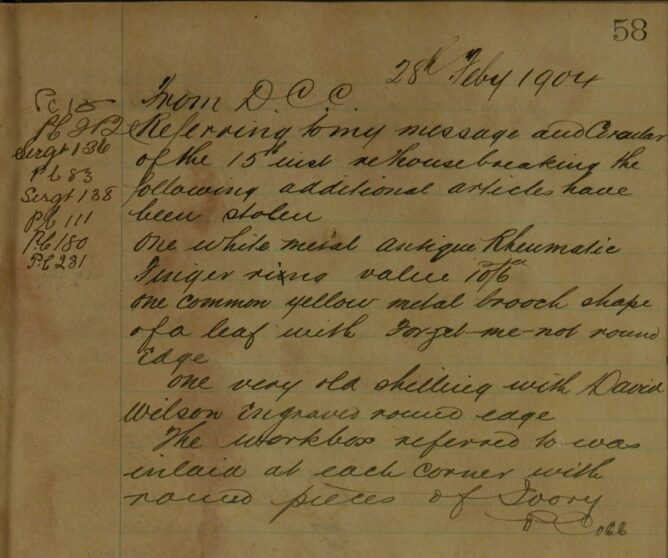 58
28th Feby 1904
From D.C.C.
Pc 15
Pc 212
Sergt 136
Pc 83
Sergt 138
Pc 111
Pc 180
Pc 231
Referring to my message and Circular
of the 15th inst re housebreaking the
following additional articles have
been stolen
One white metal antique Rheumatic
Finger ring value 10/6
one common yellow metal brooch shape
of a leaf with Forget-me-not round
Edge
One very old shilling with David
Wilson Engraved round edge
The workbox referred to was
inlaid at each corner with
round pieces of Ivory